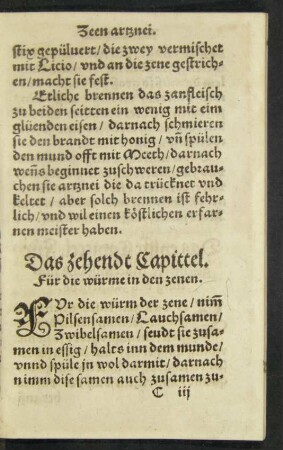 Zeen artznei.
stix gepüluert/die zwey vermischet
mit Licio/vnd an die zene gestrich-
en/macht sie fest.
Etliche brennen das zanfleisch
zu beiden seitten ein wenig mit eim
glüenden eisen/ darnach schmieren
sie den brandt mit honig/ vñ spülen
den mund offt mit Meeth/darnach
weñs beginnet zuschweren/gebrau-
chen sie artznei die da trücknet vnd
keltet / aber solch brennen ist fehr-
lich/vnd wil einen köstlichen erfar-
nen meister haben.
Das zehendt Capittel.
Für die würme in den zenen.
FVr die würm der zene / nim̃
Pilsensamen/Lauchsamen/
Zwibelsamen / seudt sie zusa-
men in essig / halts inn dem munde/
vnnd spüle jn wol darmit/ darnach
nimm dise samen auch zusamen zu-
C iij